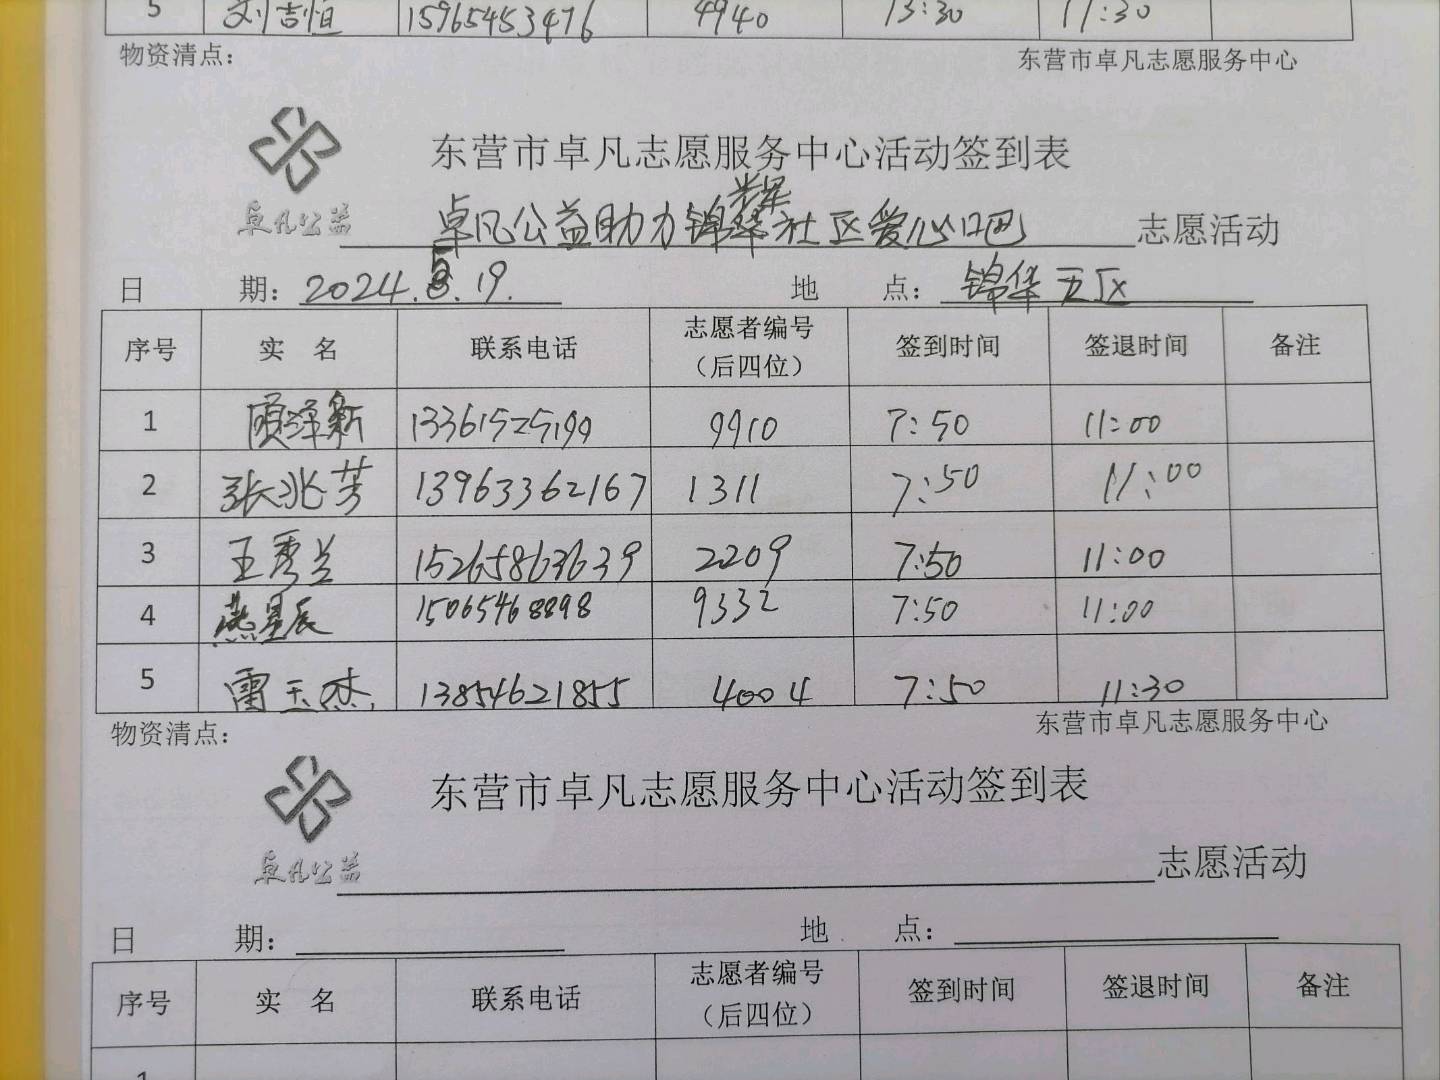 5 刘吉恒 15965453476 4940 13:30 17:30
物资清点： 东营市卓凡志愿服务中心
东营市卓凡志愿服务中心活动签到表
卓凡公益
卓凡公益助力锦华社区爱心吧 志愿活动
日 期：2024.5.19. 地 点：锦华五区
序号 实 名 联系电话 志愿者编号（后四位） 签到时间 签退时间 备注
1 顾泽新 13361525199 9910 7:50 11:00
2 张兆芳 13963362167 1311 7:50 11:00
3 王秀兰 15265863639 2209 7:50 11:00
4 燕星辰 15065468898 9332 7:50 11:00
5 雷玉杰 13854621855 4004 7:50 11:30
物资清点： 东营市卓凡志愿服务中心
东营市卓凡志愿服务中心活动签到表
卓凡公益
志愿活动
日 期： 地 点：
序号 实 名 联系电话 志愿者编号（后四位） 签到时间 签退时间 备注
1